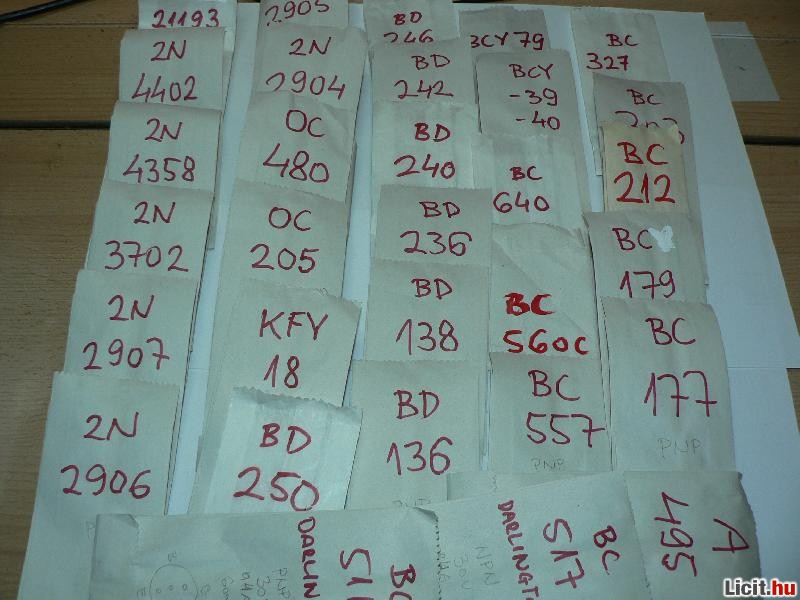 21193
2N
4402
2N
4358
2N
3702
2N
2907
2N
2906
2905
2N
2904
OC
480
OC
205
KFY
18
BD
250
BD
246
BD
242
BD
240
BD
236
BD
138
BD
136
BCY 79
BCY
-39
-40
BC
640
BC
560C
BC
557
PNP
BC
327
BC
BC
212
BC
179
BC
177
PNP
DARLIN
PNP
30
BC
51
DARLINGT
NPN
30V
BC
517
A
495
Licit.hu